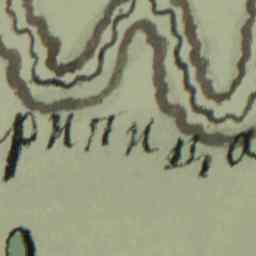 рипица